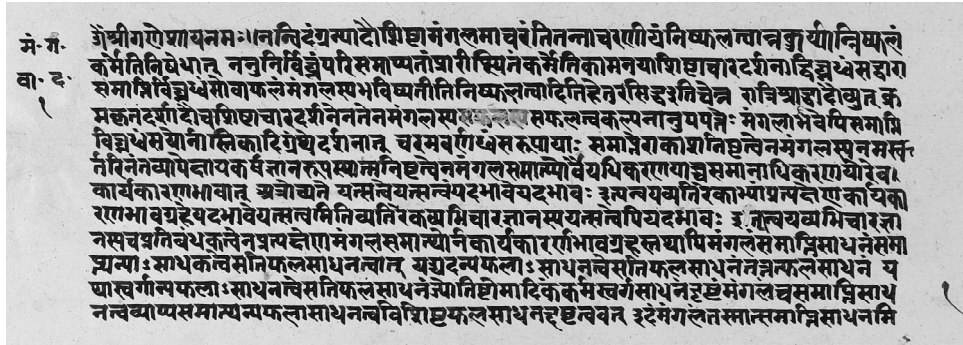 मं॰ ग॰
वा॰ द॰
१
ॐश्रीगणेशायनमः।।नन्विदंग्रन्थादौशिष्टामंगलमाचरंतितन्नाचरणीयंनिष्फलत्वान्नकुर्य्यान्निष्फलं
कर्मेतिनिषेधात् ननुनिर्विघ्नंपरिसमाप्यतांप्रारीप्सितंकर्मेतिकामनयाशिष्टाचारदर्शनाद्विघ्नध्वंसद्वारा
समाप्तिर्विघ्नध्वंसोवाफलंमंगलस्यभविष्यतीतिनिष्फलत्वादितिहेतुरसिद्धइतिचेन्न रात्रिश्राद्धादौव्युत्क्र
मकृतदर्शादौचशिष्टाचारदर्शनेनतेनमंगलस्य सफलत्वकल्पनानुपपत्तेः मंगलाभावेपिसमाप्ति
विघ्नध्वंसयोर्नास्तिकादिग्रंथेदर्शनात् चरमवर्णध्वंसरूपायाः समाप्तेराकाशनिष्टत्वेनमंगलस्यनमस्का
र्तरिनंतव्यापेक्षयाकर्षज्ञानरूपस्यात्मनिष्टत्वेनमंगलसमाप्त्योर्वैयधिकरण्याच्चसमानाधिकरणयोरेव।
कार्यकारणभावात् अत्रोच्यते यत्सत्वेयत्सत्वंयदभावेयदभावः इत्यन्वयव्यतिरेकाभ्यांप्रत्यक्षेणकार्यका
रणभावग्रहेयदभावेयत्सत्वमितिव्यतिरेकव्यभिचारज्ञानस्ययत्सत्वेपियदभावः इत्यन्वयव्यभिचारज्ञा
नस्यचप्रतिबंधकत्वेनप्रत्यक्षेणमंगलसमाप्त्योर्नकार्यकारणभावग्रहस्तथापिमंगलंसमाप्तिसाधनंसमा
प्त्यन्याऽसाधकत्वेसतिफलसाधनत्वात् यद्यदन्यफलाऽसाधनत्वेसतिफलसाधनंतत्तत्फलसाधनं य
थास्वर्गान्यफलाऽसाधनत्वेसतिफलसाधनंज्योतिष्टोमादिकंकर्मस्वर्गसाधनंदृष्टंमंगलंचसमाप्तिसाध
नत्वव्याप्यसमाप्त्यन्यफलासाधनत्वविशिष्टफलसाधनत्ववत् इदंमंगलंतस्मात्समाप्तिसाधनमि